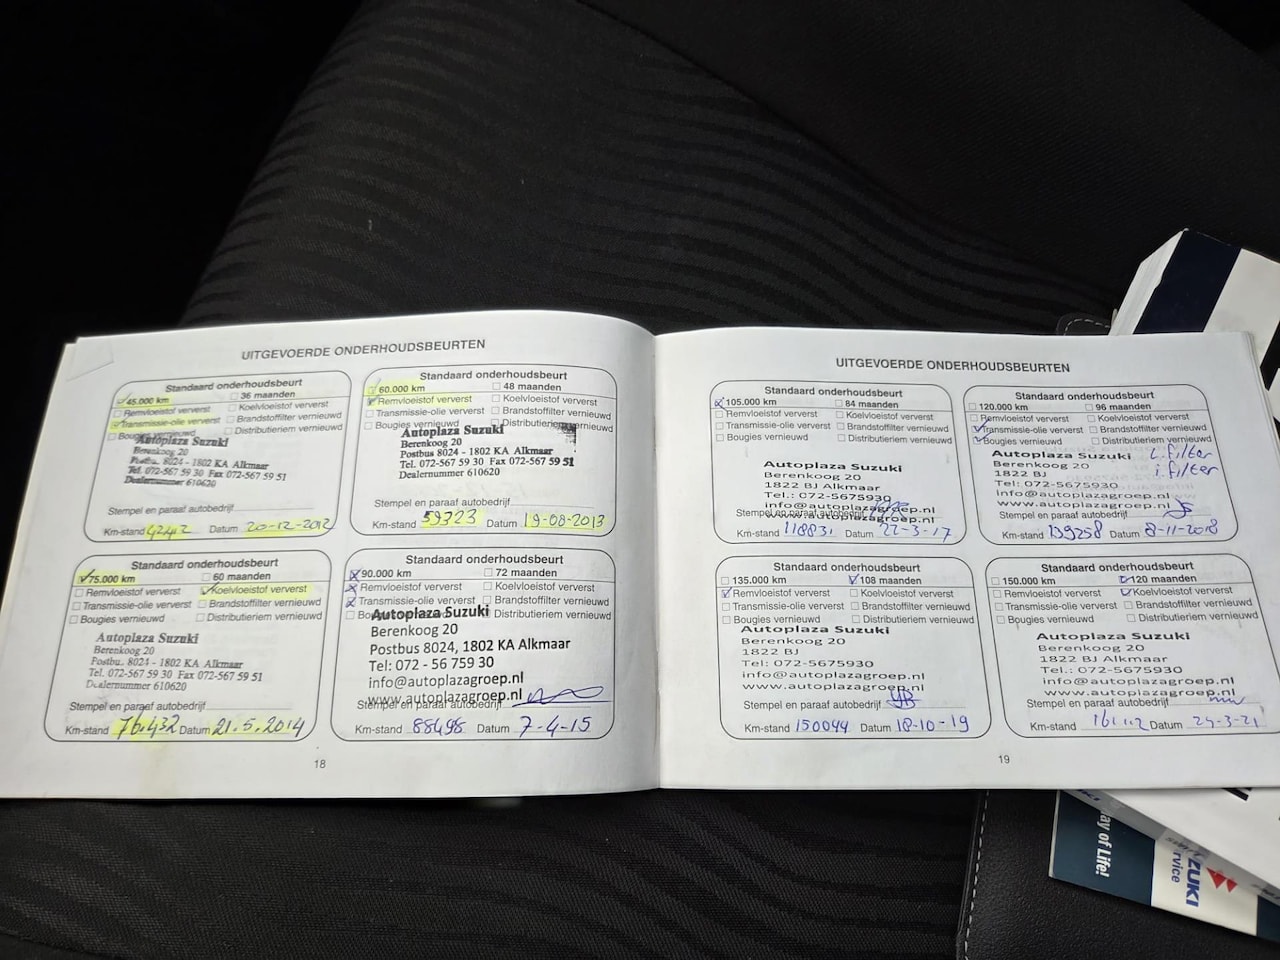 UITGEVOERDE ONDERHOUDSBEURTEN
Standaard onderhoudsbeurt
45.000 km 36 maanden
Remvloeistof ververst Koelvloeistof ververst
Transmissie-olie ververst Brandstoffilter vernieuwd
Bougies vernieuwd Distributieriem vernieuwd
Autoplaza Suzuki
Berenkoog 20
Postbus 8024 - 1802 KA Alkmaar
Tel. 072-567 59 30 Fax 072-567 59 51
Dealernummer 610620
Stempel en paraaf autobedrijf
Km-stand Datum 20-12-2012
Standaard onderhoudsbeurt
60.000 km 48 maanden
Remvloeistof ververst Koelvloeistof ververst
Transmissie-olie ververst Brandstoffilter vernieuwd
Bougies vernieuwd Distributieriem vernieuwd
Autoplaza Suzuki
Berenkoog 20
Postbus 8024 - 1802 KA Alkmaar
Tel. 072-567 59 30 Fax 072-567 59 51
Dealernummer 610620
Stempel en paraaf autobedrijf
Km-stand 59323 Datum 19-08-2013
Standaard onderhoudsbeurt
75.000 km 60 maanden
Remvloeistof ververst Koelvloeistof ververst
Transmissie-olie ververst Brandstoffilter vernieuwd
Bougies vernieuwd Distributieriem vernieuwd
Autoplaza Suzuki
Berenkoog 20
Postbus 8024 - 1802 KA Alkmaar
Tel. 072-567 59 30 Fax 072-567 59 51
Dealernummer 610620
Stempel en paraaf autobedrijf
Km-stand 76.432 Datum 21.5.2014
Standaard onderhoudsbeurt
90.000 km 72 maanden
Remvloeistof ververst Koelvloeistof ververst
Transmissie-olie ververst Brandstoffilter vernieuwd
Distributieriem vernieuwd
Autoplaza Suzuki
Berenkoog 20
Postbus 8024, 1802 KA Alkmaar
Tel: 072 - 56 759 30
info@autoplazagroep.nl
www.autoplazagroep.nl
Stempel en paraaf autobedrijf
Km-stand 88498 Datum 7-4-15
18
UITGEVOERDE ONDERHOUDSBEURTEN
Standaard onderhoudsbeurt
105.000 km 84 maanden
Remvloeistof ververst Koelvloeistof ververst
Transmissie-olie ververst Brandstoffilter vernieuwd
Bougies vernieuwd Distributieriem vernieuwd
Autoplaza Suzuki
Berenkoog 20
1822 BJ Alkmaar
Tel.: 072-5675930
info@autoplazagroep.nl
Stempel en paraaf autobedrijf
www.autoplazagroep.nl
Km-stand 118831 Datum 22-3-17
Standaard onderhoudsbeurt
120.000 km 96 maanden
Remvloeistof ververst Koelvloeistof ververst
Transmissie-olie ververst Brandstoffilter vernieuwd
Bougies vernieuwd Distributieriem vernieuwd
Autoplaza Suzuki L.filter
Berenkoog 20 i.filter
1822 BJ
Tel: 072-5675930
info@autoplazagroep.nl
www.autoplazagroep.nl
Stempel en paraaf autobedrijf
Km-stand 139258 Datum 8-11-2018
Standaard onderhoudsbeurt
135.000 km 108 maanden
Remvloeistof ververst Koelvloeistof ververst
Transmissie-olie ververst Brandstoffilter vernieuwd
Bougies vernieuwd Distributieriem vernieuwd
Autoplaza Suzuki
Berenkoog 20
1822 BJ
Tel: 072-5675930
info@autoplazagroep.nl
www.autoplazagroep.nl
Stempel en paraaf autobedrijf
Km-stand 150044 Datum 18-10-19
Standaard onderhoudsbeurt
150.000 km 120 maanden
Remvloeistof ververst Koelvloeistof ververst
Transmissie-olie ververst Brandstoffilter vernieuwd
Bougies vernieuwd Distributieriem vernieuwd
Autoplaza Suzuki
Berenkoog 20
1822 BJ Alkmaar
Tel.: 072-5675930
info@autoplazagroep.nl
www.autoplazagroep.nl
Stempel en paraaf autobedrijf
Km-stand Datum
19
ay of Life!
ZUKI
rvice